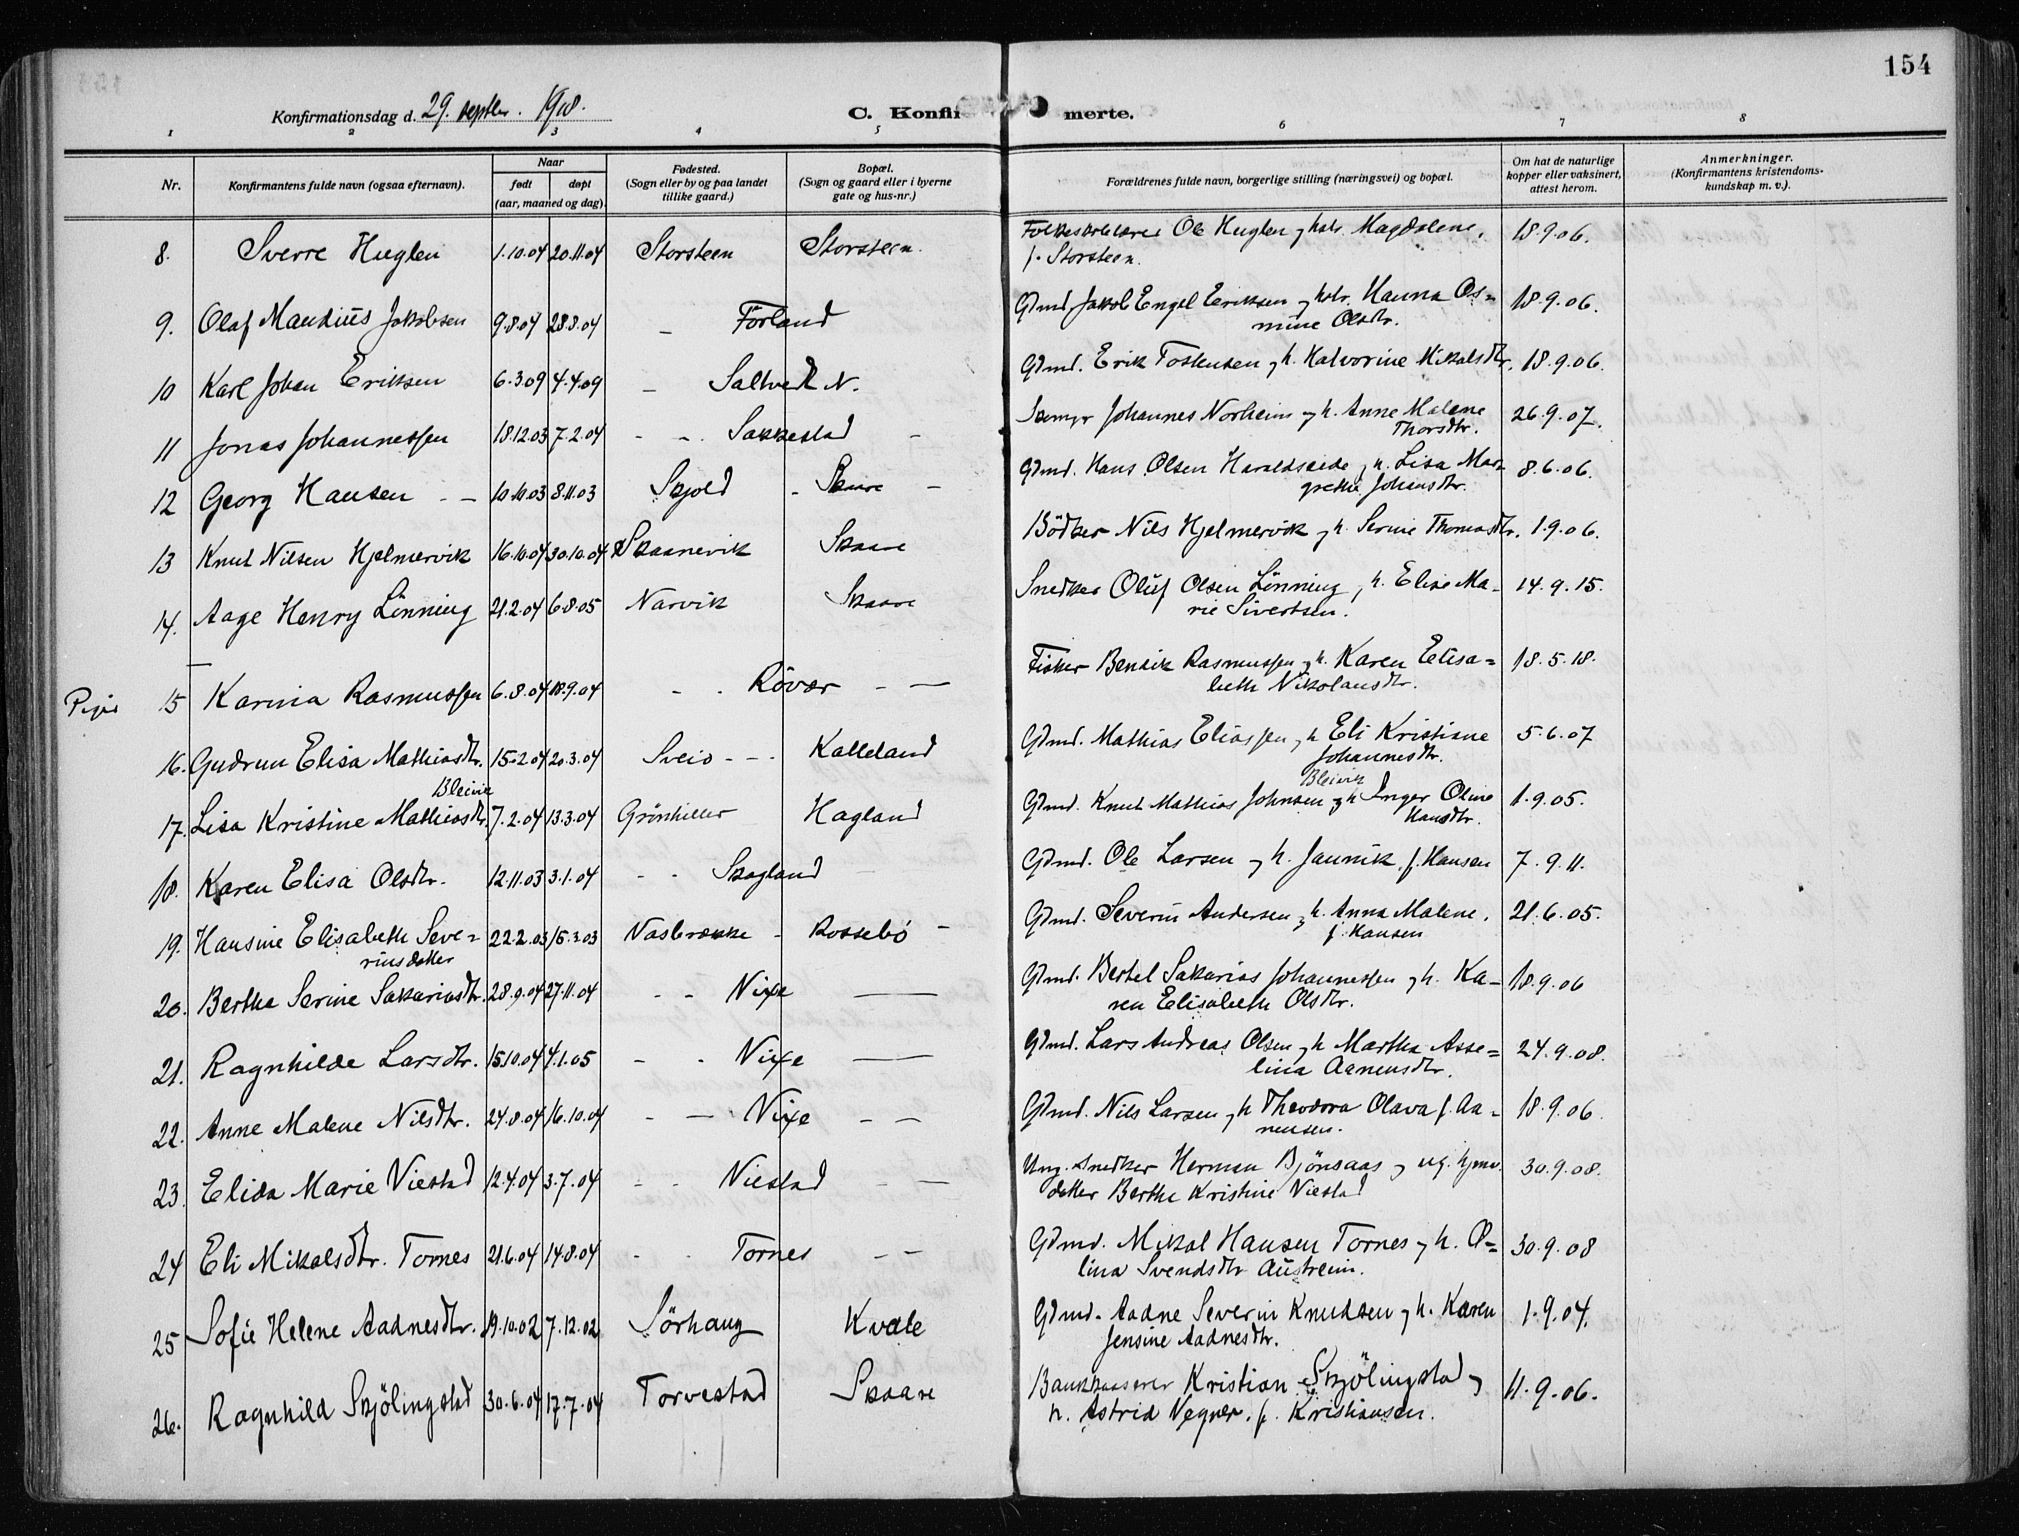 154
Konfirmationsdag d. 29. septbr. 1918.
C. Konfir merte.
1 2 3 4 5 6 7 8
Nr. Konfirmantens fulde navn (ogsaa efternavn). Naar født døpt (aar, maaned og dag). Fødested. (Sogn eller by og paa landet tillike gaard.) Bopæl. (Sogn og gaard eller i byerne gate og hus-nr.) Forældrenes fulde navn, borgerlige stilling (næringsvei) og bopæl. Om hat de naturlige kopper eller vaksinert, attest herom. Anmerkninger. (Konfirmantens kristendoms-kundskap m. v.).
8. Sverre Huglen 1.10.04 20.11.04 Storsteen Storsteen. Ole Huglen og hstr. Magdalene, 18.9.06.
f. Storsteen.
9. Olaf Mandius Jakobsen 9.8.04 28.8.04 – Førland Gdmd. Jakob Engel Eriksen og hstr. Hanna Os= 18.9.06.
mine Olsdtr.
10 Karl Johan Eriksen 6.3.09 4.4.09 – Saltved N. Gdmd. Erik Tostensen og h. Halvorine Mikalsdtr. 18.9.06.
11 Jonas Johannessen 18.12.03 7.2.04 - -. Sakkestad - Johannes Norheim og h. Anne Malene 26.9.07.
Thorsdtr.
12 Georg Hansen - – 10.10.03 8.11.03 Skjold - Skaare – Gdmd. Hans Olsen Haraldseide og h. Lisa Mar= 8.6.06.
grethe Johansdtr.
13 Knut Nilsen Hjelmervik 16.10.04 30.10.04 Skaanevik Skaare Bödker Nils Hjelmervik og h. Serine Thomasdtr. 1.9.06.
14. Aage Henry Lönning 21.2.04 6.8.05 Narvik Skaare Snedker Oluf Olsen Lönning, h. Elise Ma- 14.9.15.
rie Sivertsen.
Piger 15 Karina Rasmussen 6.8.04 18.9.04 - - Rövær - — Fisker Bendik Rasmussen og h. Karen Elisa= 18.5.18.
beth Nikolausdtr.
16. Gudrun Elisa Mathiasdtr. 15.2.04 20.3.04 Sveio - - - Kalleland Gdmd. Mathias Eliassen og h Eli Kristiane 5.6.07
Johannesdtr.
Bleivik Bleivik
17. Lisa Kristine Mathiasdtr. 7.2.04 13.3.04 Grönhiller Hagland Gdmd. Knut Mathias Johnsen og h Inger Oline 1.9.05.
Hansdtr.
18. Karen Elisa Olsdtr. 12.11.03 3.1.04 - - Skogland Gdmd. Ole Larsen og h. Jannik f. Hansen 7.9.11.
19. Hansine Elisabeth Seve= 22.2.03 15.3.03 Vasbrække - Rossebö - Gdmd. Severin Andersen og h. Anna Malene, 21.6.05.
rinsdatter f. Hansen
20. Bertha Serine Sakariasdtr. 28.9.04 27.11.04 - - Nixe —— Gdmd. Bertel Sakarias Johannessen og h. Ka- 18.9.06
ren Elisabeth Olsdtr.
21. Ragnhilde Larsdtr. 15.10.04 4.1.05 - - Nixe —— Gdmd. Lars Andreas Olsen og h Martha Asse= 24.9.08.
lina Aanensdtr.
22. Anne Malene Nilsdtr. 24.8.04 16.10.04 - — Nixe - — Gdmd. Nils Larsen og h Theodora Olava f. Aa- 18.9.06.
nensen.
23. Elida Marie Viestad 12.4.04 3.7.04 - - Viestad - — Ung. snedker Herman Bjönsaas og ug. hjmv. 30.9.08.
datter Bertha Kristine Viestad
24 Eli Mikalsdtr. Tornes 21.6.04 14.8.04 - - Tornes - - Gdmd. Mikal Hansen Tornes og h. O= 30.9.08
lina Svendsdtr Austreim.
25 Sofie Helene Aadnesdtr. 19.10.02 7.12.02 Sörhaug Kvale Gdmd. Aadne Severin Knudsen og h. Karen 1.9.04.
Jensine Aadnesdtr.
26. Ragnhild Skjölingstad 30.6.04 17.7.04 Torvestad Skaare Bankkasserer Kristian Skjölingstad og 11.9.06.
h. Astrid Vegner f. Kristiansen.